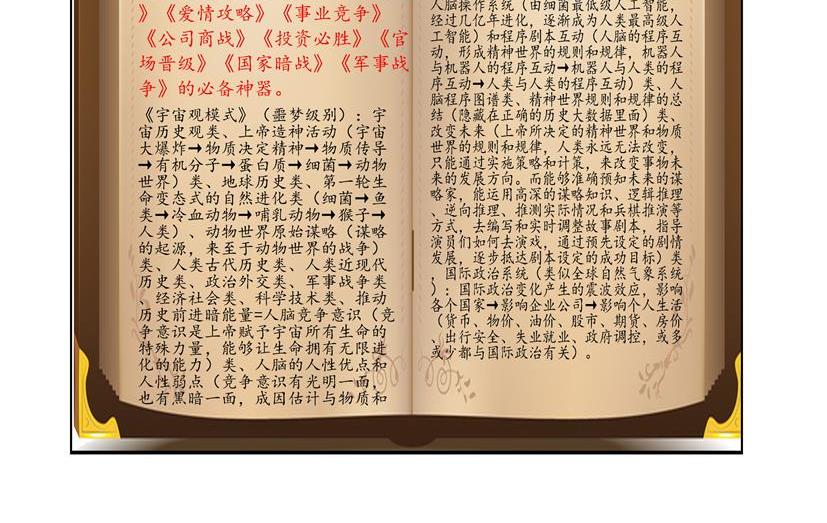 》《爱情攻略》《事业竞争》
《公司商战》《投资必胜》《官
场晋级》《国家暗战》《军事战
争》的必备神器。
《宇宙观模式》（噩梦级别）：宇
宙历史观类、上帝造神活动（宇宙
大爆炸→物质决定精神→物质传导
→有机分子→蛋白质→细菌→动物
世界）类、地球历史类、第一轮生
命变态式的自然进化类（细菌→鱼
类→冷血动物→哺乳动物→猴子→
人类）、动物世界原始谋略（谋略
的起源，来至于动物世界的战争）
类、人类古代历史类、人类近现代
历史类、政治外交类、军事战争类
、经济社会类、科学技术类、推动
历史前进暗能量=人脑竞争意识（竞
争意识是上帝赋予宇宙所有生命的
特殊力量，能够让生命拥有无限进
化的能力）类、人脑的人性优点和
人性弱点（竞争意识有光明一面，
也有黑暗一面，成因估计与物质和
人脑操作系统（由细菌最低级人工智能，
经过几亿年进化，逐渐成为人类最高级人
工智能）和程序剧本互动（人脑的程序互
动，形成精神世界的规则和规律，机器人
与机器人的程序互动→机器人与人类的程
序互动→人类与人类的程序互动）类、人
脑程序图谱类、精神世界规则和规律的总
结（隐藏在正确的历史大数据里面）类、
改变未来（上帝所决定的精神世界和物质
世界的规则和规律，人类永远无法改变，
只能通过实施策略和计策，来改变事物未
来的发展方向。而能够准确预知未来的谋
略家，能运用高深的谋略知识、逻辑推理
、逆向推理、推测实际情况和兵棋推演等
方式，去编写和实时调整故事剧本，指导
演员们如何去演戏，通过预先设定的剧情
发展，逐步抵达剧本设定的成功目标）类
、国际政治系统（类似全球自然气象系统
）：国际政治变化产生的震波效应，影响
各个国家→影响企业公司→影响个人生活
（货币、物价、油价、股市、期货、房价
、出行安全、失业就业、政府调控，或多
或少都与国际政治有关）。